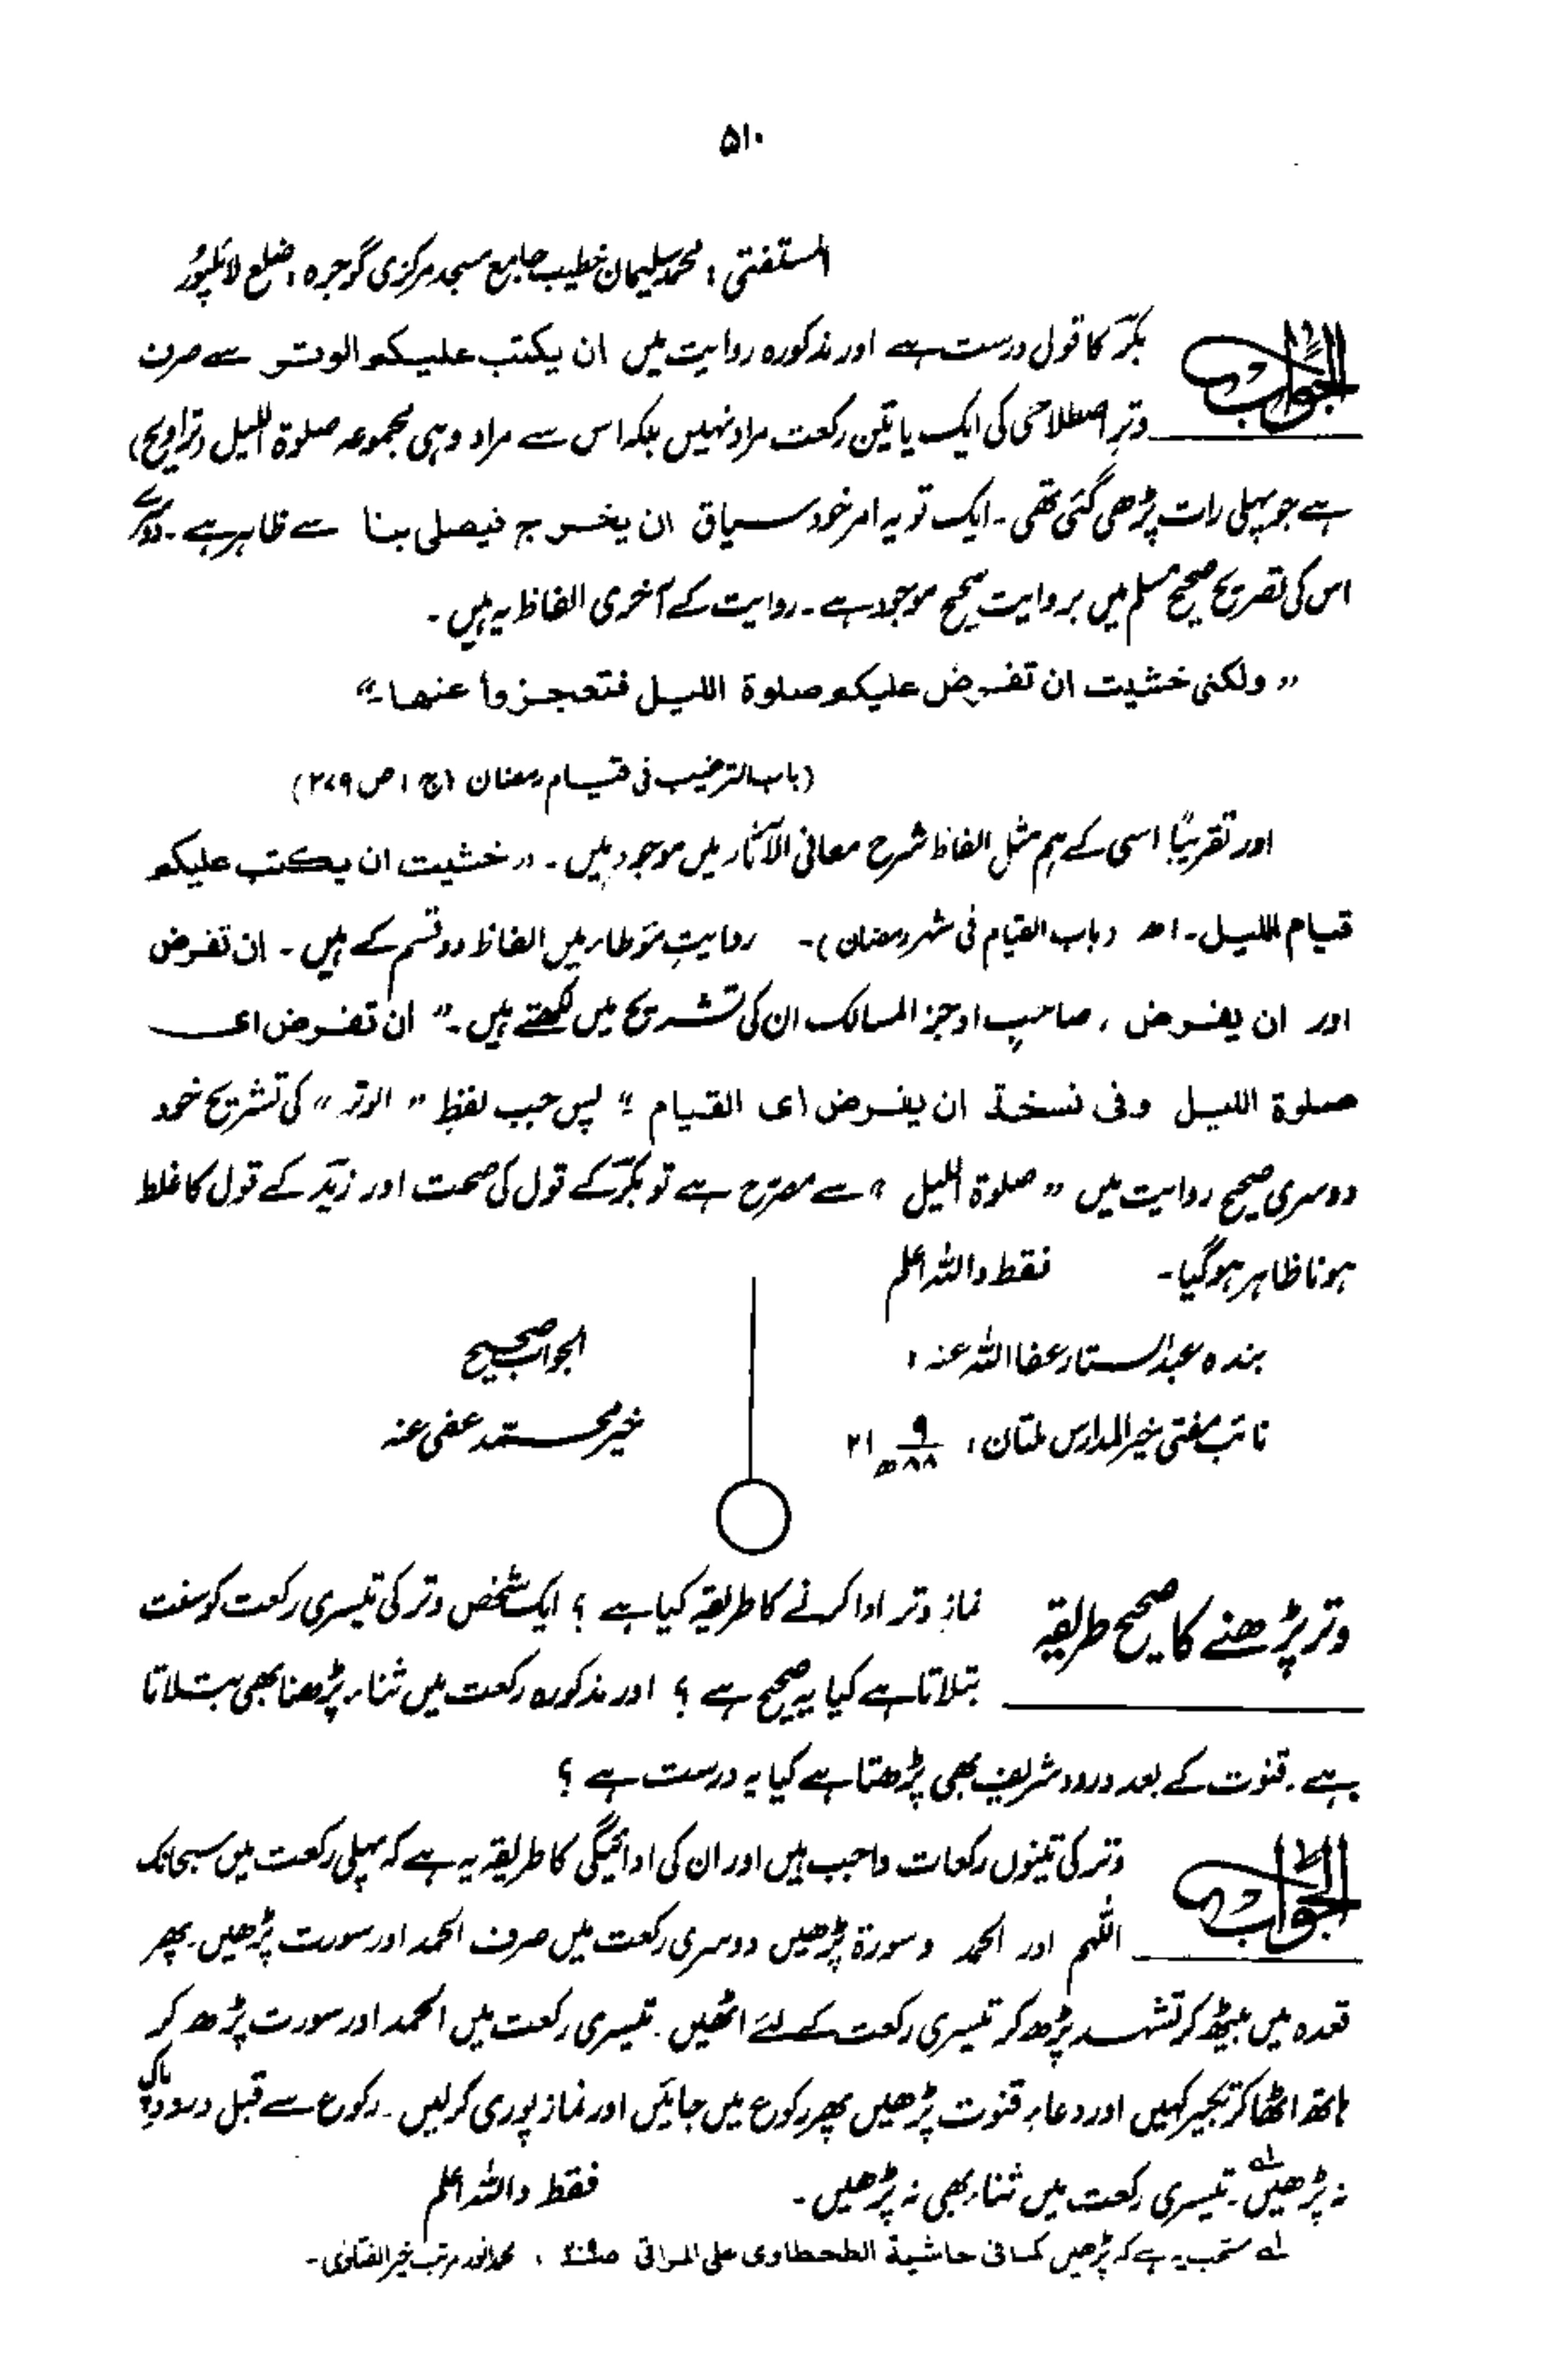 ۵۱۰
المستفتی؛ محمد سلیمان خطیب جامع مسجد مرکزی گوجرہ، ضلع لائلپور
الجواب
بکر کا قول درست ہے اور مذکورہ روایت میں ان یکتب علیکم الوتر سے صرف
وتر اصطلاحی کی ایک یا تین رکعت مراد نہیں بلکہ اس سے مراد وہی مجموعہ صلوٰۃ اللیل (تراویح)
ہے جو پہلی رات پڑھی گئی تھی۔ ایک تو یہ امر خود سیاق ان یخرج فیصلی بنا سے ظاہر ہے۔ دوسرے
اس کی تصریح صحیح مسلم میں بروایت صحیح موجود ہے۔ روایت کے آخری الفاظ یہ ہیں۔
" ولکنی خشیت ان تفرض علیکم صلوۃ اللیل فتعجزوا عنھا۔"
(باب الترغیب فی قیام رمضان (ج ۱ ص ۲۷۹)
اور تقریباً اسی کے ہم مثل الفاظ شرح معانی الآثار میں موجود ہیں۔ " خشیت ان یکتب علیکم
قیام اللیل۔ اھ (باب القیام فی شھر رمضان)۔ روایتِ مؤطا ء میں الفاظ دو قسم کے ہیں۔ ان تفرض
اور ان یفرض ، صاحبِ اوجز المسالک ان کی تشریح میں لکھتے ہیں۔" ان تفرض ای
صلوۃ اللیل وفی نسخۃ ان یفرض ای القیام ؛ پس جب لفظِ " الوتر " کی تشریح خود
دوسری صحیح روایت میں " صلوۃ اللیل " سے مصرح ہے تو بکر کے قول کی صحت اور زید کے قول کا غلط
ہونا ظاہر ہوگیا۔ فقط واللہ اعلم
بندہ عبدالستار عفا اللہ عنہ؛
الجواب صحیح
نائب مفتی خیر المدارس ملتان؛ ۲۱/۹/۸۸ھ
خیر محمد عفی عنہ
وتر پڑھنے کا صحیح طریقہ
نمازِ وتر ادا کرنے کا طریقہ کیا ہے ؟ ایک شخص وتر کی تیسری رکعت کو سنت
بتلاتا ہے کیا یہ صحیح ہے ؟ اور مذکورہ رکعت میں ثناء پڑھنا بھی بتلاتا
ہے۔ قنوت کے بعد درود شریف بھی پڑھتا ہے کیا یہ درست ہے ؟
الجواب
وتر کی تینوں رکعات واجب ہیں اور ان کی ادائیگی کا طریقہ یہ ہے کہ پہلی رکعت میں سبحانک
اللّٰھم اور الحمد و سورۃ پڑھیں دوسری رکعت میں صرف الحمد اور سورت پڑھیں۔ پھر
قعدہ میں بیٹھ کر تشہد پڑھ کر تیسری رکعت کے لئے اٹھیں۔ تیسری رکعت میں الحمد اور سورت پڑھ کر
ہاتھ اٹھا کر تکبیر کہیں اور دعاء قنوت پڑھیں پھر رکوع میں جائیں اور نماز پوری کرلیں۔ رکوع سے قبل درود پاک
نہ پڑھیں لہ۔ تیسری رکعت میں ثناء بھی نہ پڑھیں۔ فقط واللہ اعلم
لہ مستحب یہ ہے کہ پڑھیں کما فی حاشیۃ الطحطاوی علی المراقی ، محمد انور مرتب خیر الفتاوٰی۔